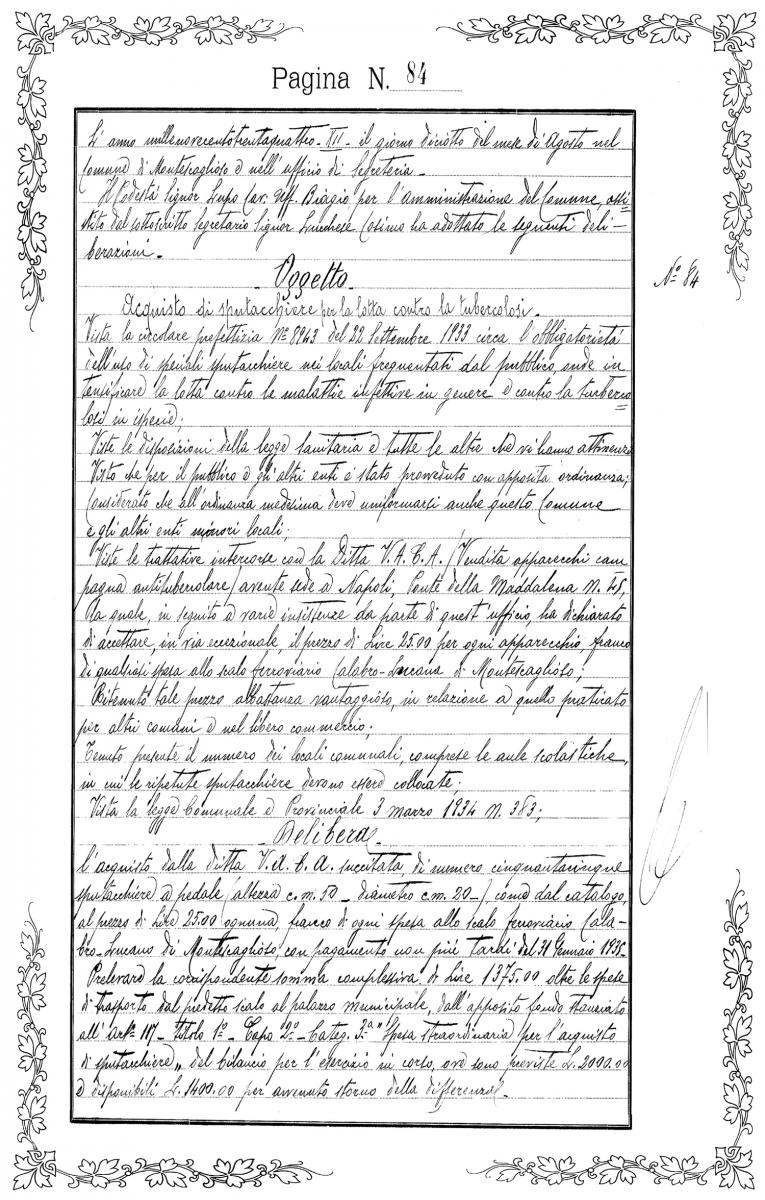 Pagina N. 84
L'anno millenovecentotrentaquattro - XII - il giorno diciotto del mese di Agosto nel
Comune di Montescaglioso e nell'ufficio di Segreteria -
Il Podestà Signor Lupo Cav. Uff. Biagio per l'amministrazione del Comune, assi=
stito dal sottoscritto Segretario Signor Lucchese Cosimo ha adottato le seguenti deli-
berazioni.-
- Oggetto -
Nº 84
Acquisto di sputacchiere per la lotta contro la tubercolosi.
Vista la circolare prefettizia Nº 8943 del 22 Settembre 1933 circa l'obbligatorietà
dell'uso di speciali sputacchiere nei locali frequentati dal pubblico, onde in
tensificare la lotta contro le malattie infettive in genere e contro la tuberco=
losi in ispecie;
Viste le disposizioni della legge sanitaria e tutte le altre che vi hanno attinenza
Visto che per il pubblico e gli altri enti è stato provveduto con apposita ordinanza;
Considerato che all'ordinanza medesima deve uniformarsi anche questo Comune
e gli altri enti minori locali;
Viste le trattative intercorse con la Ditta V.A.C.A. (Vendita apparecchi cam
pagna antitubercolare) avente sede a Napoli, Ponte della Maddalena N. 45,
la quale, in seguito a varie insistenze da parte di quest'ufficio, ha dichiarato
di accettare, in via eccezionale, il prezzo di Lire 25.00 per ogni apparecchio, franco
di qualsiasi spesa allo scalo ferroviario Calabro-Lucana di Montescaglioso;
Ritenuto tale prezzo abbastanza vantaggioso, in relazione a quello praticato
per altri comuni e nel libero commercio;
Tenuto presente il numero dei locali comunali, comprese le aule scolastiche,
in cui le ripetute sputacchiere devono essere collocate;
Vista la legge Comunale e Provinciale 3 marzo 1934 N. 383;
- Delibera -
l'acquisto dalla ditta V.A.C.A. succitata, di numero cinquantacinque
sputacchiere a pedale (altezza c.m. 50 - diametro c.m. 20-) come dal catalogo,
al prezzo di Lire 25.00 ognuna, franco di ogni spesa allo scalo ferroviario Cala-
bro-Lucano di Montescaglioso, con pagamento non più tardi del 31 Gennaio 1935-
Prelevare la corrispondente somma complessiva di Lire 1375.00 oltre le spese
di trasporto dal predetto scalo al palazzo municipale, dall'apposito fondo stanziato
all'artº 117- titolo 1º- Capo 2º- Categ. 3ª "Spesa straordinaria per l'acquisto
di sputacchiere" del bilancio per l'esercizio in corso, ove sono previste L. 2000.00
e disponibili L. 1400.00 per avvenuto storno della differenza.-